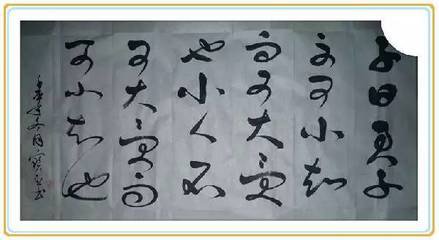 子曰君子
不可小知
而可大受
也小人不
可大受而
可小知也